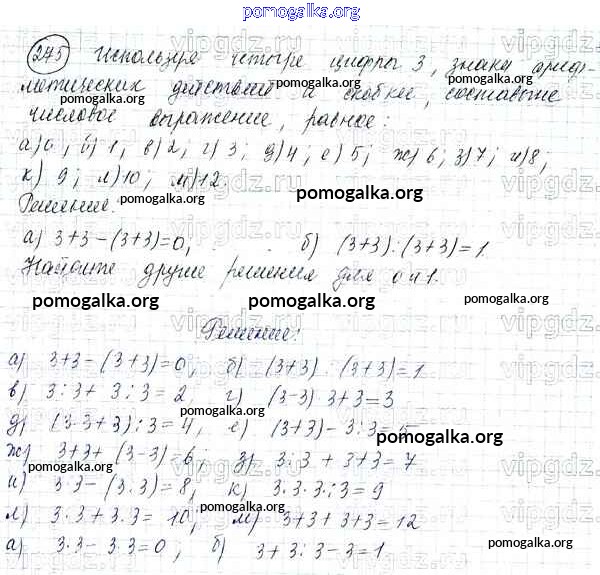 pomogalka.org
245 Используя четыре цифры 3, знаки ариф-
метических действий и скобки, составьте
pomogalka.org pomogalka.org pomogalka.org
числовое выражение, равное:
а) 0; б) 1; в) 2; г) 3; д) 4; е) 5; ж) 6; з) 7; и) 8;
к) 9; л) 10; м) 12.
pomogalka.org
Решение.
а) 3+3-(3+3)=0, б) (3+3):(3+3)=1.
Найдите другие решения для 0 и 1.
pomogalka.org pomogalka.org pomogalka.org
Решение:
а) 3+3-(3+3)=0, б) (3+3):(3+3)=1
в) 3:3+3:3=2, г) (3-3)·3+3=3
д) (3·3+3):3=4, е) (3+3)-3:3=5
pomogalka.org
ж) 3+3+(3-3)=6; з) 3:3+3+3=7
pomogalka.org
и) 3·3-(3:3)=8, к) 3·3·3:3=9
pomogalka.org
л) 3·3+3:3=10, м) 3+3+3+3=12
pomogalka.org
а) 3·3-3·3=0, б) 3+3:3-3=1
pomogalka.org